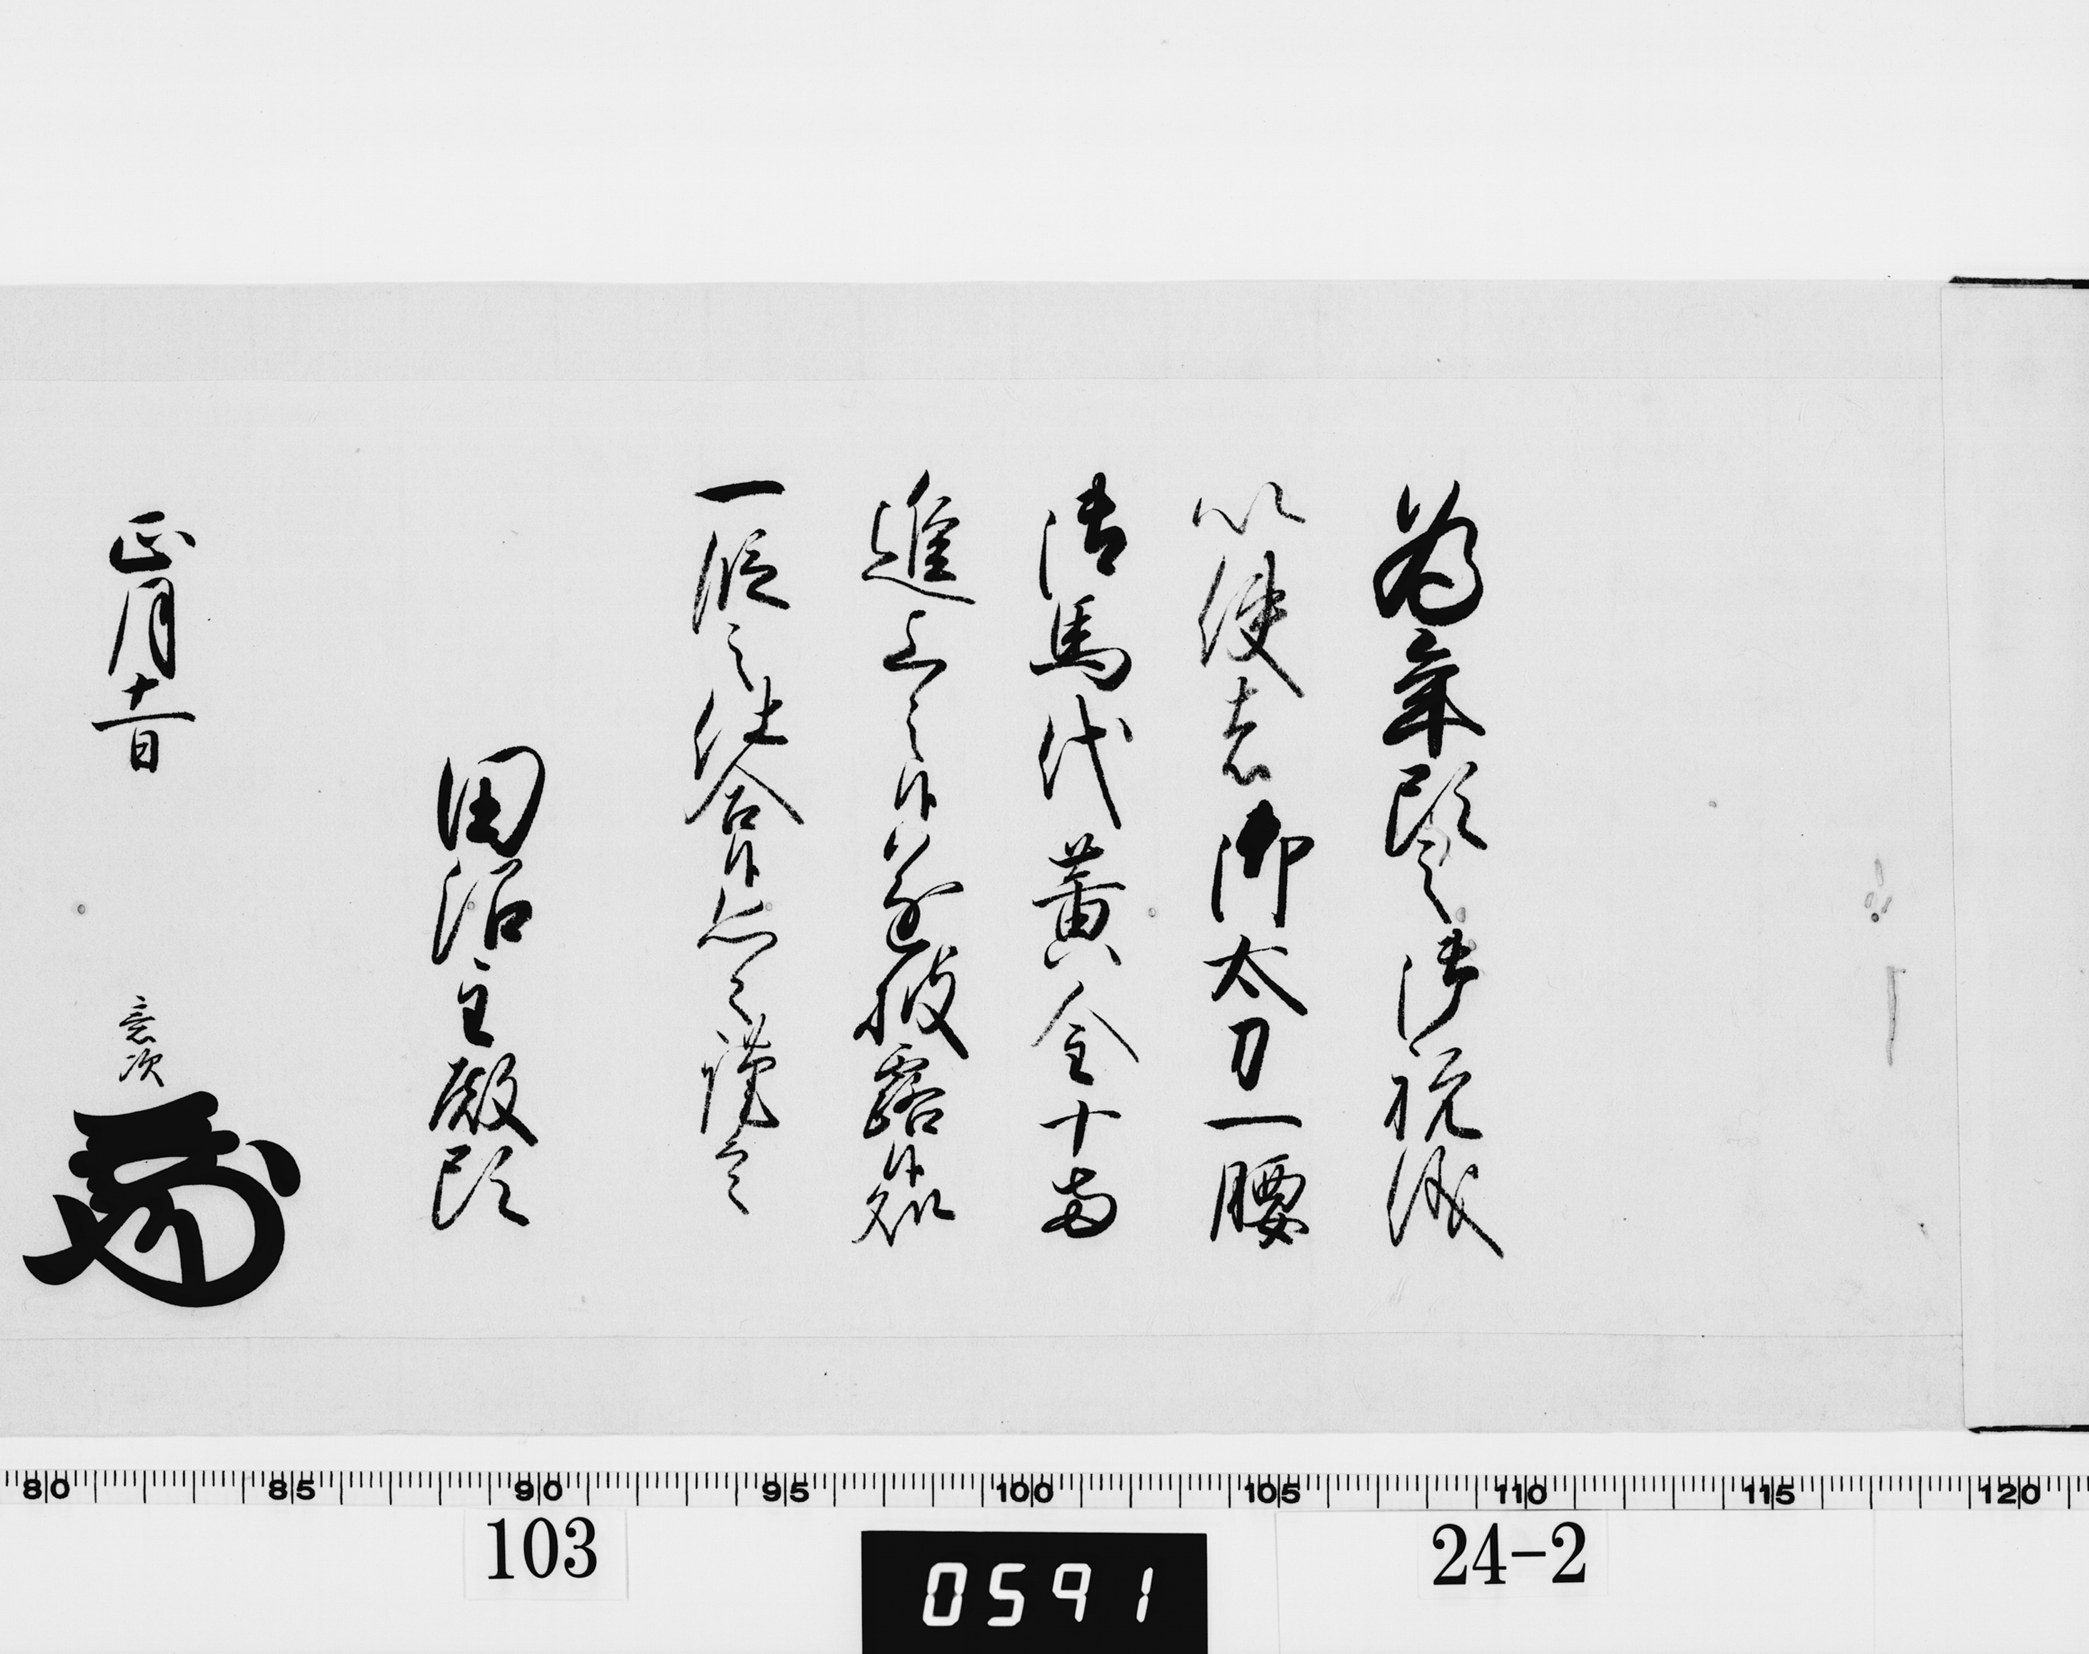 為年頭之御祝儀
以使者御太刀一腰
御馬代黄金十両
進上之候遂披露候処
一段之仕合候恐々謹言
田沼主殿頭
正月十一日
意次
80 85 90 95 100 105 110 115 120
103
0591
24-2